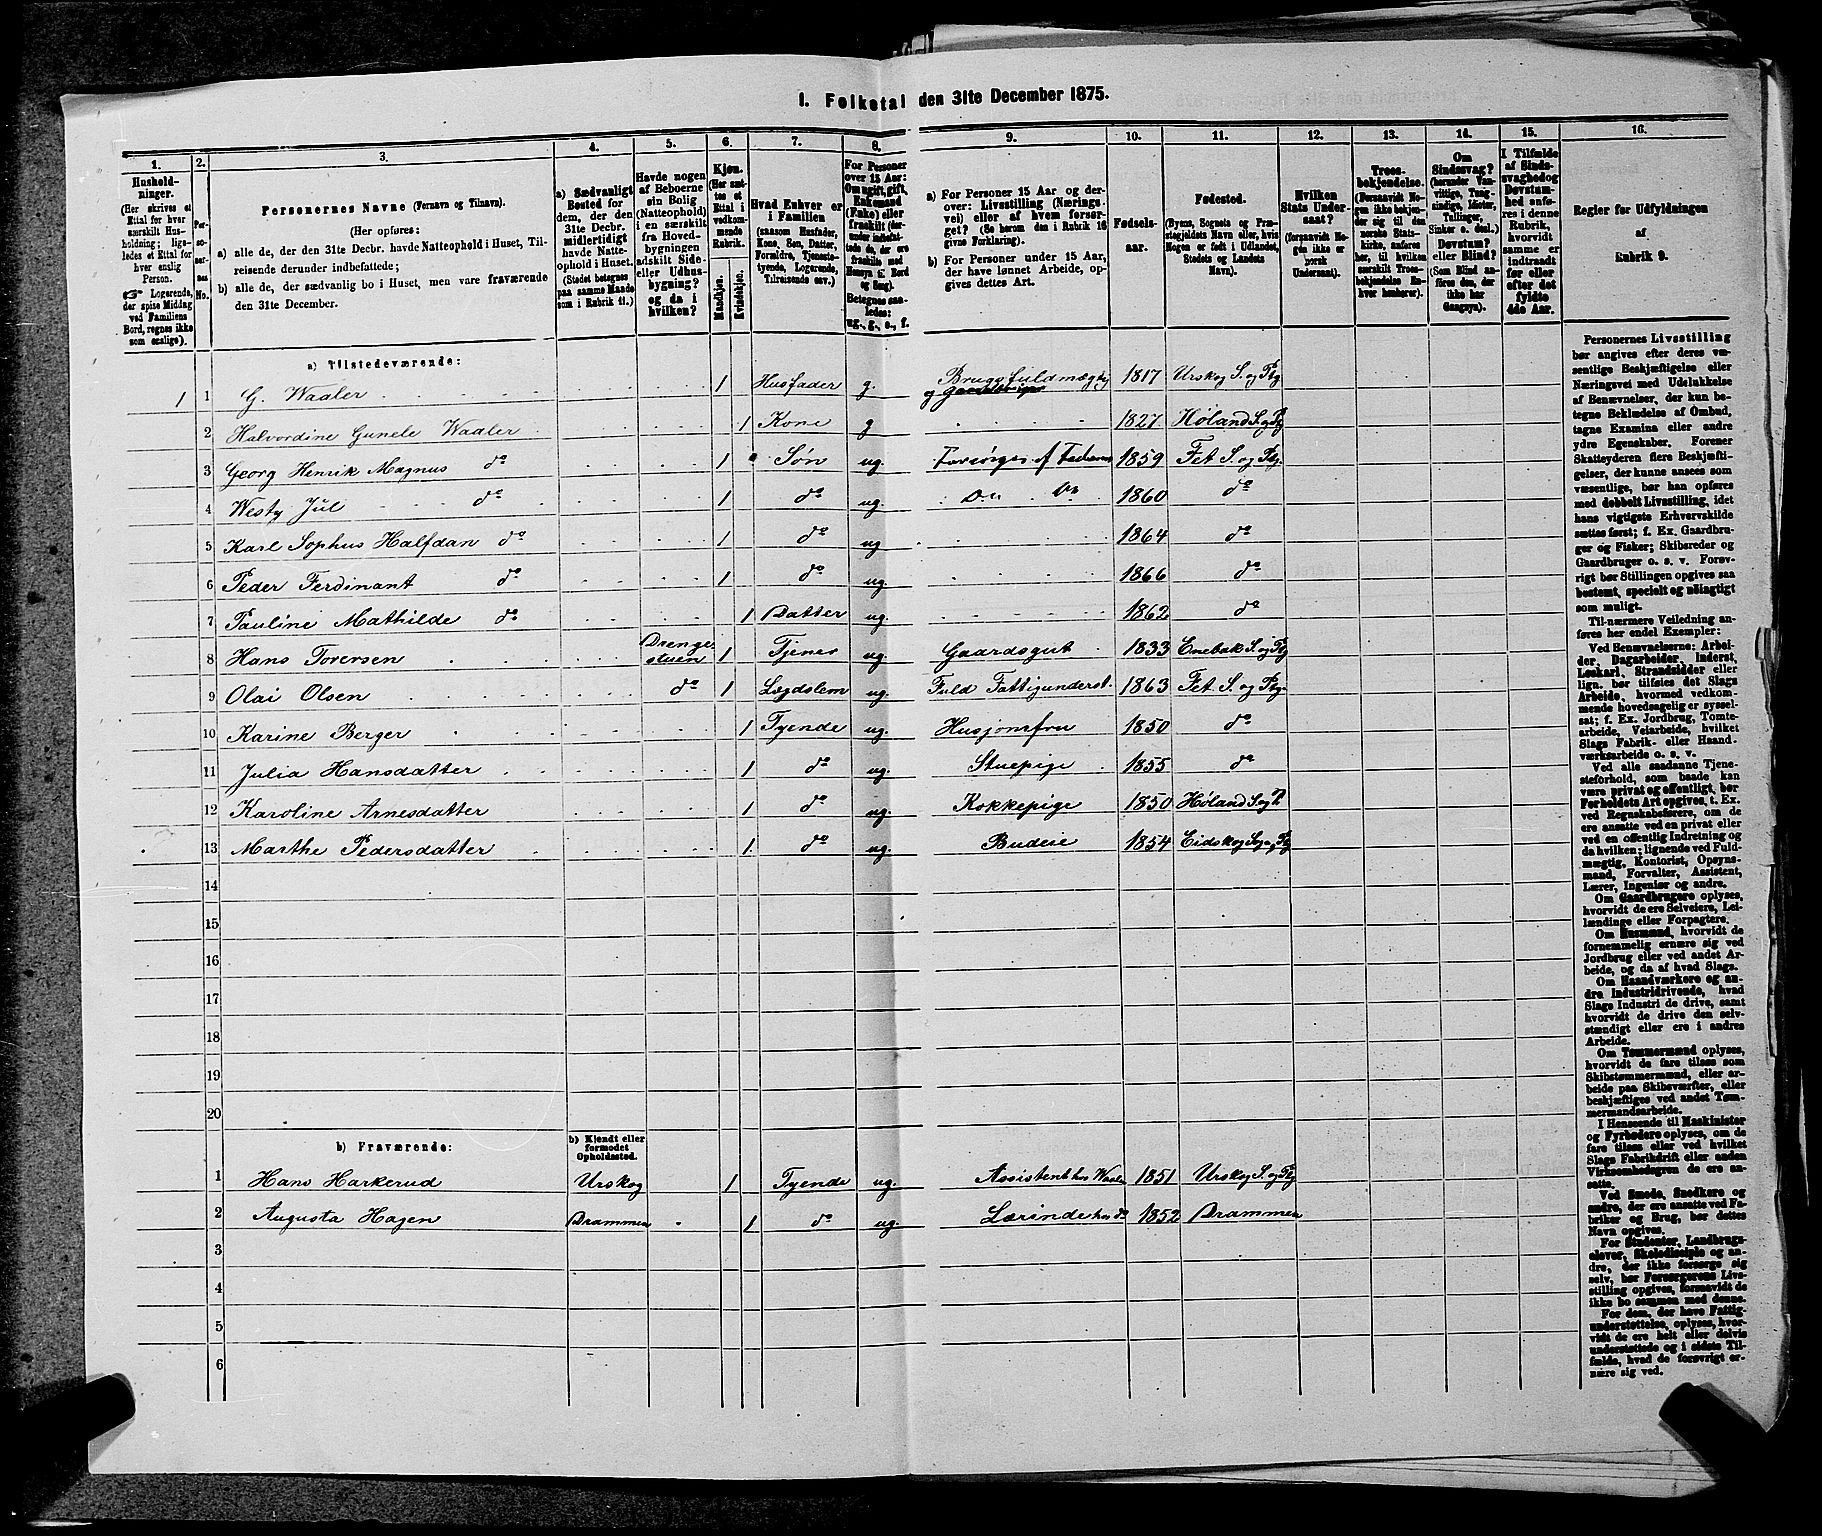 1. Folketal den 31te December 1875.
1. 2. 3. 4. 5. 6. 7. 8. 9. 10. 11. 12. 13. 14. 15. 16.
Hushold-
ninger.
(Her skrives et
Ettal for hver
særskilt Hus-
holdning; lige-
ledes et Ettal for
hver enslig
Person.
Logerende,
der spise Middag
ved Familiens
Bord, regnes ikke
som enslige).
Per-
so-
ner-
nes
No.
Personernes Navne (Fornavn og Tilnavn).
(Her opføres:
a) alle de, der den 31te Decbr. havde Natteophold i Huset, Til-
reisende derunder indbefattede;
b) alle de, der sædvanlig bo i Huset, men vare fraværende
den 31te December.
a) Sædvanligt
Bosted for
dem, der den
31te Decbr.
midlertidigt
havde Natte-
ophold i Huset.
(Stedet betegnes
paa samme Maade
som i Rubrik 11.)
Havde nogen
af Beboerne
sin Bolig
(Natteophold)
i en særskilt
fra Hoved-
bygningen
adskilt Side-
eller Udhus-
bygning?
og da i
hvilken?
Kjøn.
(Her sæt-
tes et
Ettal i
vedkom-
mende
Rubrik.
Mandkjøn.
Kvindekjøn.
Hvad Enhver er
i Familien
(saasom Husfader,
Kone, Søn, Datter,
Forældre, Tjeneste-
tyende, Logerende,
Tilreisende osv.)
For Personer
over 15 Aar:
Om ugift, gift,
Enkemand
(Enke) eller
fraskilt (der-
under indbefat-
tede de, der ere
fraskilte med
Hensyn til Bord
og Seng).
Betegnes saa-
ledes:
ug., g., e., f.
a) For Personer 15 Aar og der-
over: Livsstilling (Nærings-
vei) eller af hvem forsør-
get? (Se herom den i Rubrik 16
givne Forklaring).
b) For Personer under 15 Aar,
der have lønnet Arbeide, op-
gives dettes Art.
Fødsels-
aar.
Fødested.
(Byens, Sognets og Præ-
stegjeldets Navn eller, hvis
Nogen er født i Udlandet,
Stedets og Landets
Navn).
Hvilken
Stats Under-
saat?
(forsaavidt No-
gen ikke er
norsk
Undersaat).
Troes-
bekjendelse.
(Forsaavidt No-
gen ikke bekjen-
der sig til den
norske Stats-
kirke, anføres
her, til hvilken
særskilt Troes-
bekjendelse En-
hver henhører).
Om
Sindssvag?
(herunder Van-
vittige, Tung-
sindige, Idioter,
Tullinger,
Sinker o. desl.)
Døvstum?
eller Blind?
(Som Blind an-
føres den, der
ikke har
Gangsyn).
I Tilfælde
af Sinds-
svaghed og
Døvstum-
hed anfø-
res i denne
Rubrik,
hvorvidt
samme er
indtraadt
før eller
efter det
fyldte
4de Aar.
Regler for Udfyldningen
af
Rubrik 9.
a) Tilstedeværende:
1 1 G. Waaler 1 Husfader g. Brugsfuldmægtig og 1817 Urskog S. og Pg
2 Halvordine Gunele Waaler 1 Kone g 1827 Høland S. og Pg
3 Georg Henrik Magnus do 1 Søn ug. Forsørges af Faderen 1859 Fet S. og Pg.
4 Westy Jul do 1 do ug. Do Do 1860 do
5 Karl Sophus Halfdan do 1 do ug 1864 do
6 Peder Ferdinant do 1 do ug. 1866 do
7 Pauline Mathilde do 1 Datter ug. 1862 do
8 Hans Torersen Drenge-
stuen 1 Tjener ug Gaardsgut 1833 Enebak S. og Pg
9 Olai Olsen do 1 Lægdslem ug. Fuld Fattigunderst. 1863 Fet S. og Pg.
10 Karine Berger 1 Tyende ug. Husjomfru 1850 do
11 Julia Hansdatter 1 do ug. Stuepige 1855 do
12 Karoline Arnesdatter 1 do ug. Kokkepige 1850 Høland S. og P.
13 Marthe Pedersdatter 1 do ug. Budeie 1854 Eidskog Sogn og Pg
14
15
16
17
18
19
20
b) Fraværende:
b) Kjendt eller
formodet
Opholdssted.
1 Hans Harkerud Urskog 1 Tyende ug. Assistent hos Waaler 1851 Urskog S. og Pg
2 Augusta Hagen Drammen 1 do ug. Lærinde hos do 1852 Drammen
3
4
5
6
Personernes Livsstilling
bør angives efter deres væ-
sentlige Beskjæftigelse eller
Næringsvei med Udelukkelse
af Benævnelser, der kun be-
tegne Beklædelse af Ombud,
tagne Examina eller andre
ydre Egenskaber. Forener
Skatteyderen flere Beskjæfti-
gelser, der kunne ansees som
væsentlige, bør han opføres
med dobbelt Livsstilling, idet
hans vigtigste Erhvervskilde
sættes først; f. Ex. Gaardbru-
ger og Fisker; Skibsreder og
Gaardbruger o. s. v. Forøv-
rigt bør Stillingen opgives saa
bestemt, specielt og nøiagtigt
som muligt.
Til nærmere Veiledning an-
føres her endel Exempler:
Ved Benævnelserne: Arbei-
der, Dagarbeider, Inderst,
Løskarl, Strandsidder eller
lign. bør tilføies det Slags
Arbeide, hvormed vedkom-
mende hovedsagelig er syssel-
sat; f. Ex. Jordbrug, Tomte-
arbeide, Veiarbeide, hvilket
Slags Fabrik- eller Haand-
værksarbeide o. s. v.
Ved alle saadanne Tjene-
steforhold, som baade kan
være privat og offentligt, bør
Forholdets Art opgives, t. Ex.
ved Regnskabsførere, om de
ere ansatte ved en privat eller
ved en offentlig Indretning og
da hvilken; lignende ved Fuld-
mægtig, Kontorist, Opsyns-
mand, Forvalter, Assistent,
Lærer, Ingeniør og andre.
Om Gaardbrugere oplyses,
hvorvidt de ere Selveiere, Lei-
lændinge eller Forpagtere.
Om Husmænd, hvorvidt de
fornemmelig ernære sig ved
Jordbrug eller ved andet Ar-
beide, og da af hvad Slags.
Om Haandværkere og an-
dre Industridrivende, hvad
Slags Industri de drive, samt
hvorvidt de drive den selv-
stændigt eller ere i andres
Arbeide.
Om Tømmermænd oplyses,
hvorvidt de fare tilsøs som
Skibstømmermænd, eller ar-
beide paa Skibsværfter, eller
beskjæftiges ved andet Tøm-
mermandsarbeide.
I Henseende til Maskinister
og Fyrbødere oplyses, om de
fare tilsøs eller ved hvilket
Slags Fabrikdrift eller anden
Virksomhedsgren de ere an-
satte.
Ved Smede, Snedkere og
andre, der ere ansatte ved Fa-
briker og Brug, bør dettes
Navn opgives.
For Studenter, Landbrugs-
elever, Skoledisciple og an-
dre, der ikke forsørge sig
selv, bør Forsørgerens Livs-
stilling opgives, forsaavidt de
ikke bo sammen med denne.
For dem, der have Fattig-
understøttelse, oplyses, hvor-
vidt de ere helt eller delvis
understøttede og i sidste Til-
fælde, hvad de forøvrigt er-
nære sig ved.